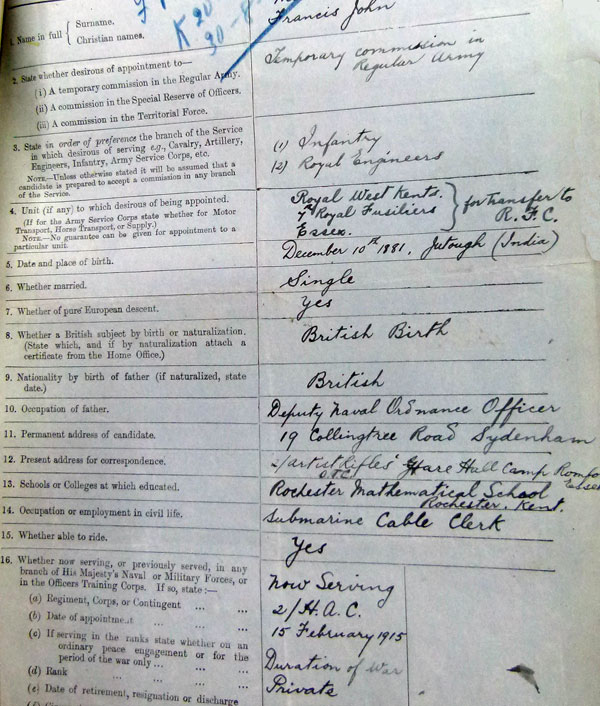 K 20
30-8
1. Name in full { Surname.
Christian names.
Francis John
2. State whether desirous of appointment to—
(i) A temporary commission in the Regular Army.
(ii) A commission in the Special Reserve of Officers.
(iii) A commission in the Territorial Force.
Temporary commission in
Regular Army
3. State in order of preference the branch of the Service
in which desirous of serving e.g., Cavalry, Artillery,
Engineers, Infantry, Army Service Corps, etc.
NOTE.—Unless otherwise stated it will be assumed that a
candidate is prepared to accept a commission in any branch
of the Service.
(1) Infantry
(2) Royal Engineers
4. Unit (if any) to which desirous of being appointed.
(If for the Army Service Corps state whether for Motor
Transport, Horse Transport, or Supply.)
NOTE.—No guarantee can be given for appointment to a
particular unit.
Royal West Kents.
7th Royal Fusiliers
Essex.
} for transfer to
R. F. C.
5. Date and place of birth.
December 10th 1881, Jutough (India)
6. Whether married.
Single
7. Whether of pure European descent.
Yes
8. Whether a British subject by birth or naturalization.
(State which, and if by naturalization attach a
certificate from the Home Office.)
British Birth
9. Nationality by birth of father (if naturalized, state
date.)
British
10. Occupation of father.
Deputy Naval Ordnance Officer
11. Permanent address of candidate.
19 Collingtree Road Sydenham
12. Present address for correspondence.
2/Artist Rifles' Hare Hall Camp Romfo
O.T.C. Essex
13. Schools or Colleges at which educated.
Rochester Mathematical School
Rochester. Kent.
14. Occupation or employment in civil life.
Submarine Cable Clerk
15. Whether able to ride.
Yes
16. Whether now serving, or previously served, in any
branch of His Majesty's Naval or Military Forces, or
in the Officers Training Corps. If so, state :—
now Serving
(a) Regiment, Corps, or Contingent ... ...
2/H.A.C.
(b) Date of appointment ... ...
15 February 1915
(c) If serving in the ranks state whether on an
ordinary peace engagement or for the
period of the war only ... ... ...
Duration of war
(d) Rank ... ... ... ...
Private
(e) Date of retirement, resignation or discharge